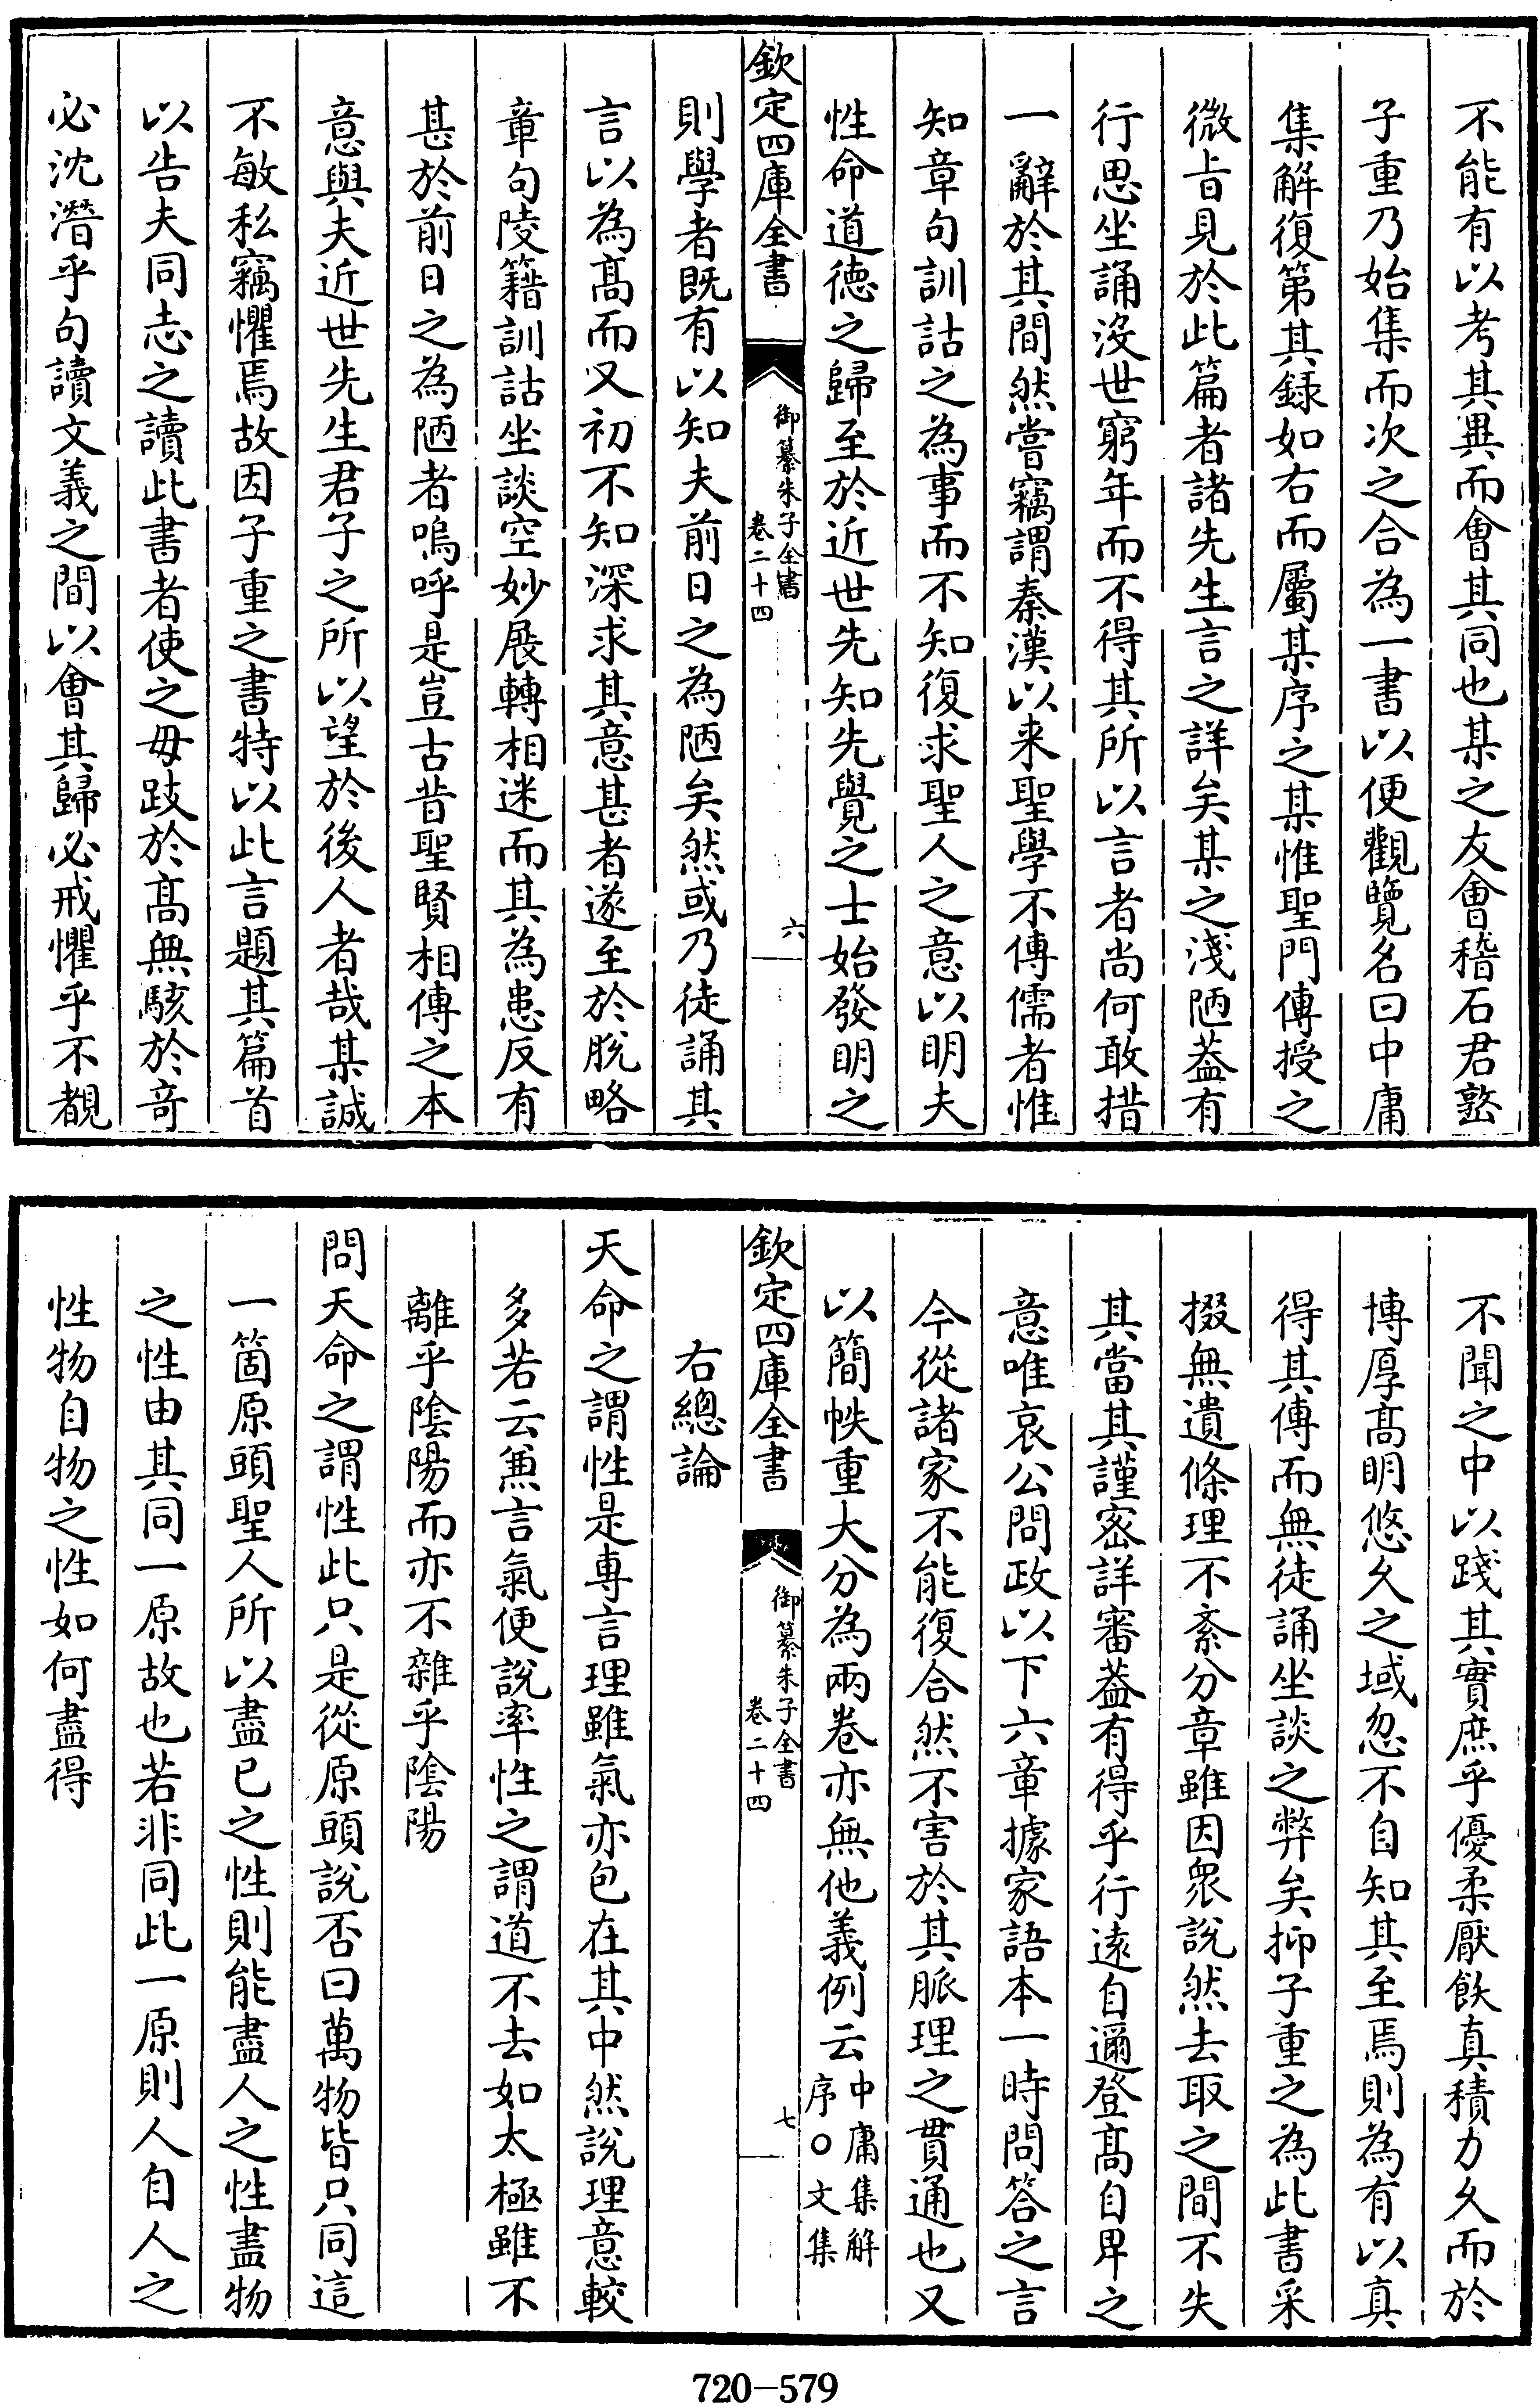 不能有以考其異而會其同也某之友會稽石君𡼖
子重乃始集而次之合為一書以便觀覽名曰中庸
集解復第其錄如右而屬某序之某惟聖門傳授之
微㫖見於此篇者諸先生言之詳矣某之淺陋葢有
行思坐誦沒世窮年而不得其所以言者尚何敢措
一辭於其間然嘗竊謂秦漢以来聖學不傳儒者惟
知章句訓詁之為事而不知復求聖人之意以明夫
性命道徳之歸至於近世先知先覺之士始發明之
欽定四庫全書
御纂朱子全書
卷二十四
六
則學者既有以知夫前日之為陋矣然或乃徒誦其
言以為髙而又初不知深求其意甚者遂至於脫略
章句陵籍訓詁坐談空妙展轉相迷而其為患反有
甚於前日之為陋者嗚呼是豈古昔聖賢相傳之本
意與夫近世先生君子之所以望於後人者哉某誠
不敏私竊懼焉故因子重之書特以此言題其篇首
以告夫同志之讀此書者使之毋跂於髙無駭於竒
必沈潛乎句讀文義之間以會其歸必戒懼乎不覩
不聞之中以踐其實庶乎優柔厭飫真積力久而於
博厚髙明悠久之域忽不自知其至焉則為有以真
得其傳而無徒誦坐談之弊矣抑子重之為此書采
掇無遺條理不紊分章雖因衆說然去取之間不失
其當其謹宻詳審葢有得乎行逺自邇登髙自卑之
意唯哀公問政以下六章據家語本一時問答之言
今從諸家不能復合然不害於其脈理之貫通也又
以簡帙重大分為兩卷亦無他義例云中庸集解序○文集
欽定四庫全書
御纂朱子全書
卷二十四
七
右總論
天命之謂性是專言理雖氣亦包在其中然說理意較
多若云兼言氣便說率性之謂道不去如太極雖不
離乎陰陽而亦不雜乎陰陽
問天命之謂性此只是從原頭說否曰萬物皆只同這
一箇原頭聖人所以盡已之性則能盡人之性盡物
之性由其同一原故也若非同此一原則人自人之
性物自物之性如何盡得
720-579